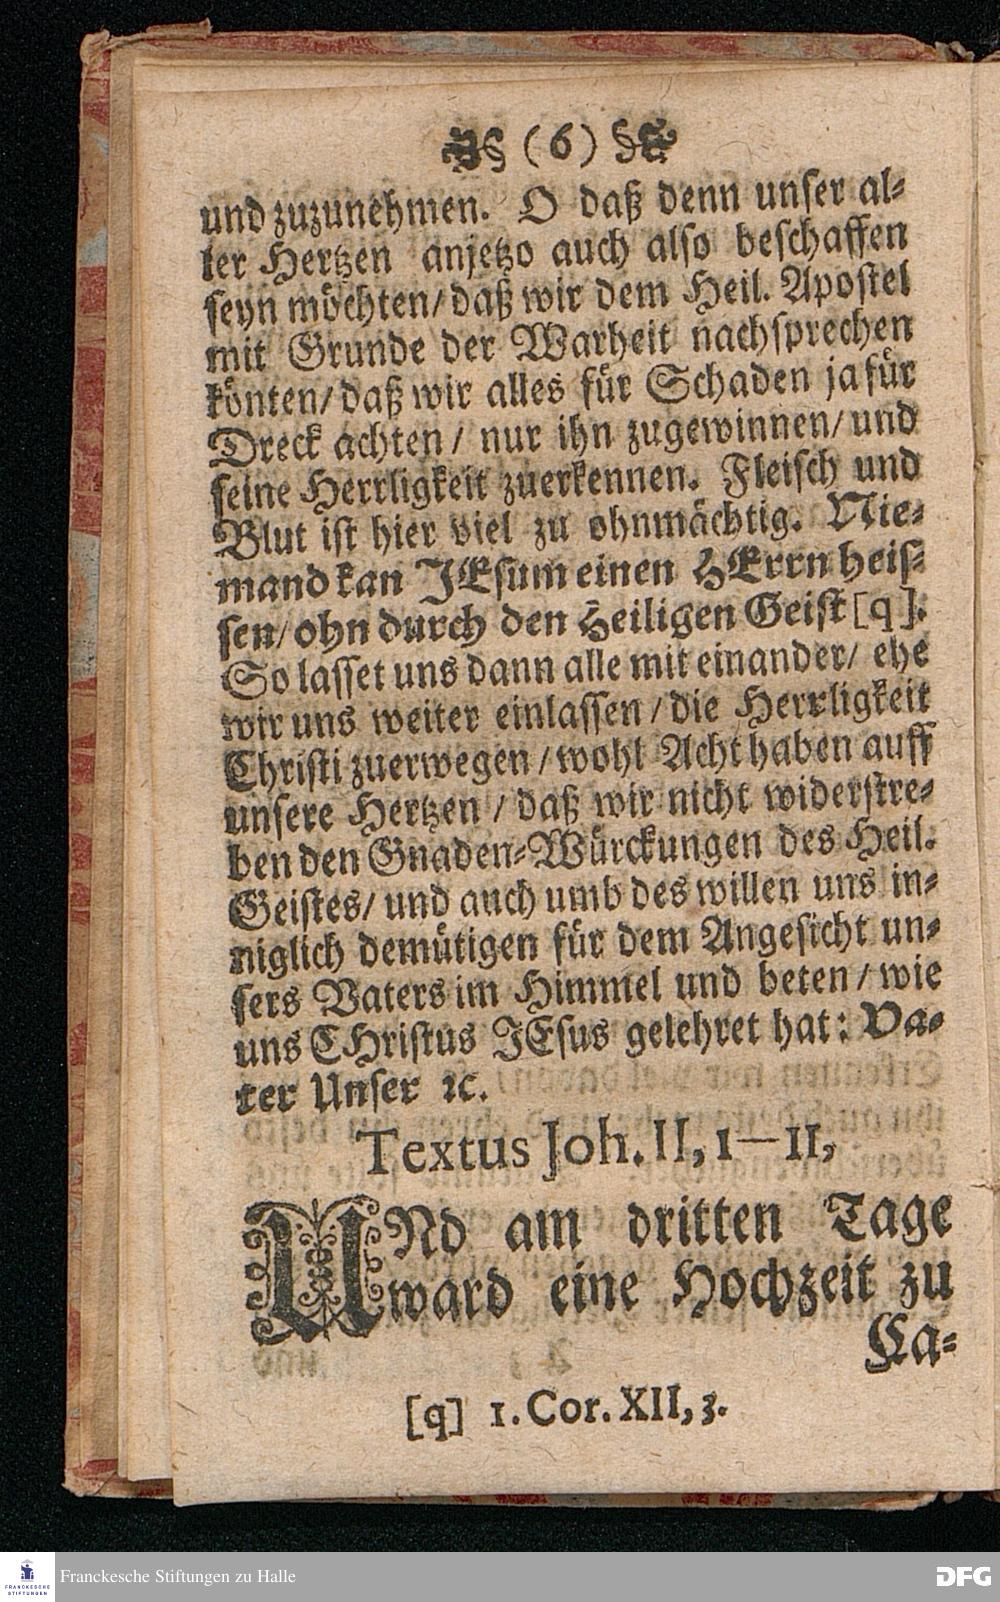 (6)
und zuzunehmen. O daß denn unser al-
ler Hertzen anjetzo auch also beschaffen
seyn möchten/ daß wir dem Heil. Apostel
mit Grunde der Warheit nachsprechen
könten/ daß wir alles für Schaden ja für
Dreck achten/ nur ihn zugewinnen/ und
seine Herrligkeit zuerkennen. Fleisch und
Blut ist hier viel zu ohnmächtig. Nie-
mand kan JEsum einen HErrn heis-
sen/ ohn durch den Heiligen Geist [q].
So lasset uns dann alle mit einander/ ehe
wir uns weiter einlassen/ die Herrligkeit
Christi zuerwegen/ wohl Acht haben auff
unsere Hertzen/ daß wir nicht widerstre-
ben den Gnaden-Würckungen des Heil.
Geistes/ und auch umb des willen uns in-
niglich demütigen für dem Angesicht un-
sers Vaters im Himmel und beten/ wie
uns CHristus JEsus gelehret hat: Va-
ter Unser ꝛc.
Textus Joh. II, 1—11,
UNd am dritten Tage
ward eine Hochzeit zu
Ca-
[q] 1. Cor. XII, 3.
FRANCKESCHE STIFTUNGEN
Franckesche Stiftungen zu Halle
DFG